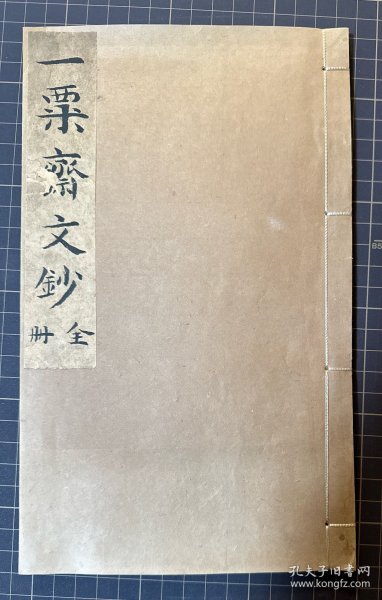 一粟齋文鈔
全冊
孔夫子旧书网
www.kongfz.com
85